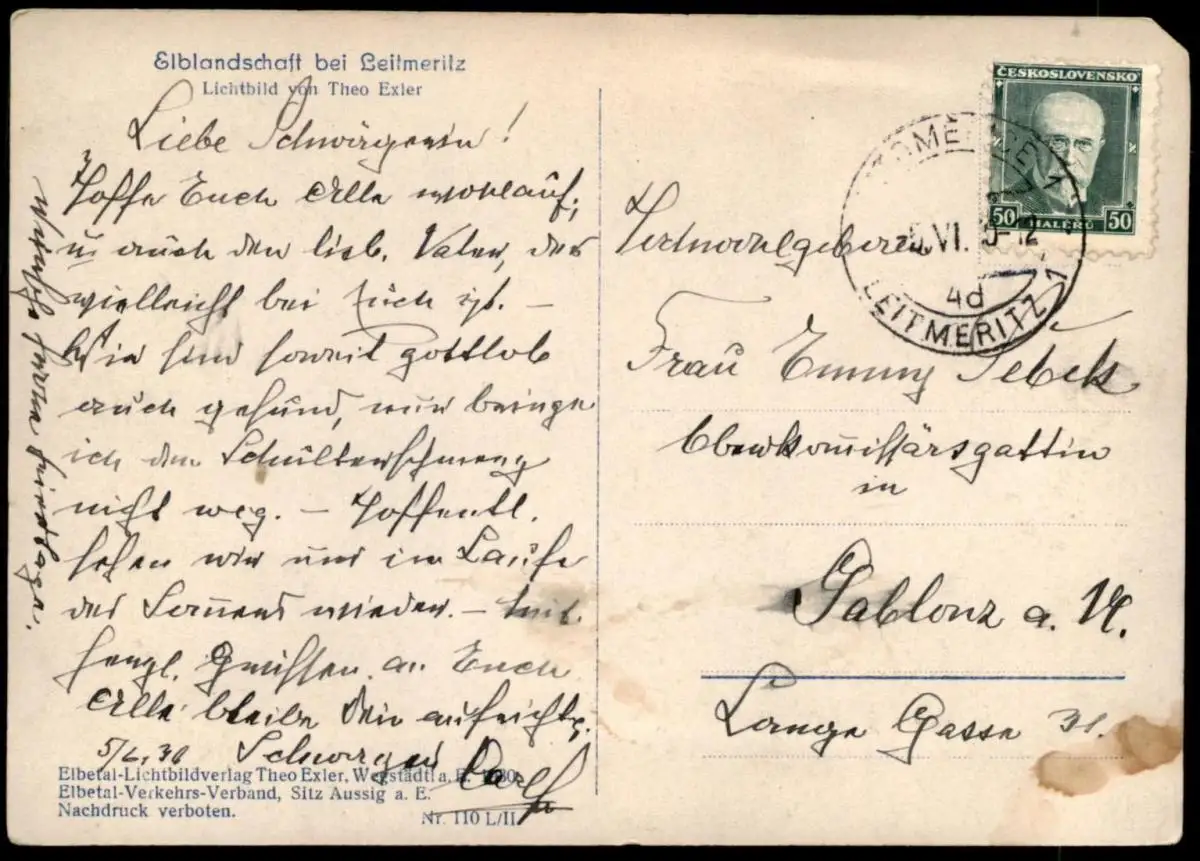 Elblandschaft bei Leitmeritz
Lichtbild von Theo Exler
Liebe Schwägerin!
Hoffe Euch Alle wohlauf,
u. auch den lieb. Vater, der
vielleicht bei Euch ist. –
Wir sind soweit gottlob
auch gesund, nur bringe
ich den Schulterschmerz
nicht weg. – Hoffentl.
sehen wir uns im Laufe
des Sommers wieder. – Mit
herzl. Grüssen an Euch
Alle bleibe Dein aufricht.
Schwager
Wünsche frohe Feiertage.
Elbetal-Lichtbildverlag Theo Exler, Wegstädtl a. E. 1930.
Elbetal-Verkehrs-Verband, Sitz Aussig a. E.
Nachdruck verboten.
Nr. 110 L/II
ČESKOSLOVENSKO
50 HALÉŘŮ 50
VI.
-12
4d
LEITMERITZ 1
Hochwohlgeboren
Frau Emmy
Oberkomissärsgattin
in
Gablonz a. N.
Lange Gasse 31.